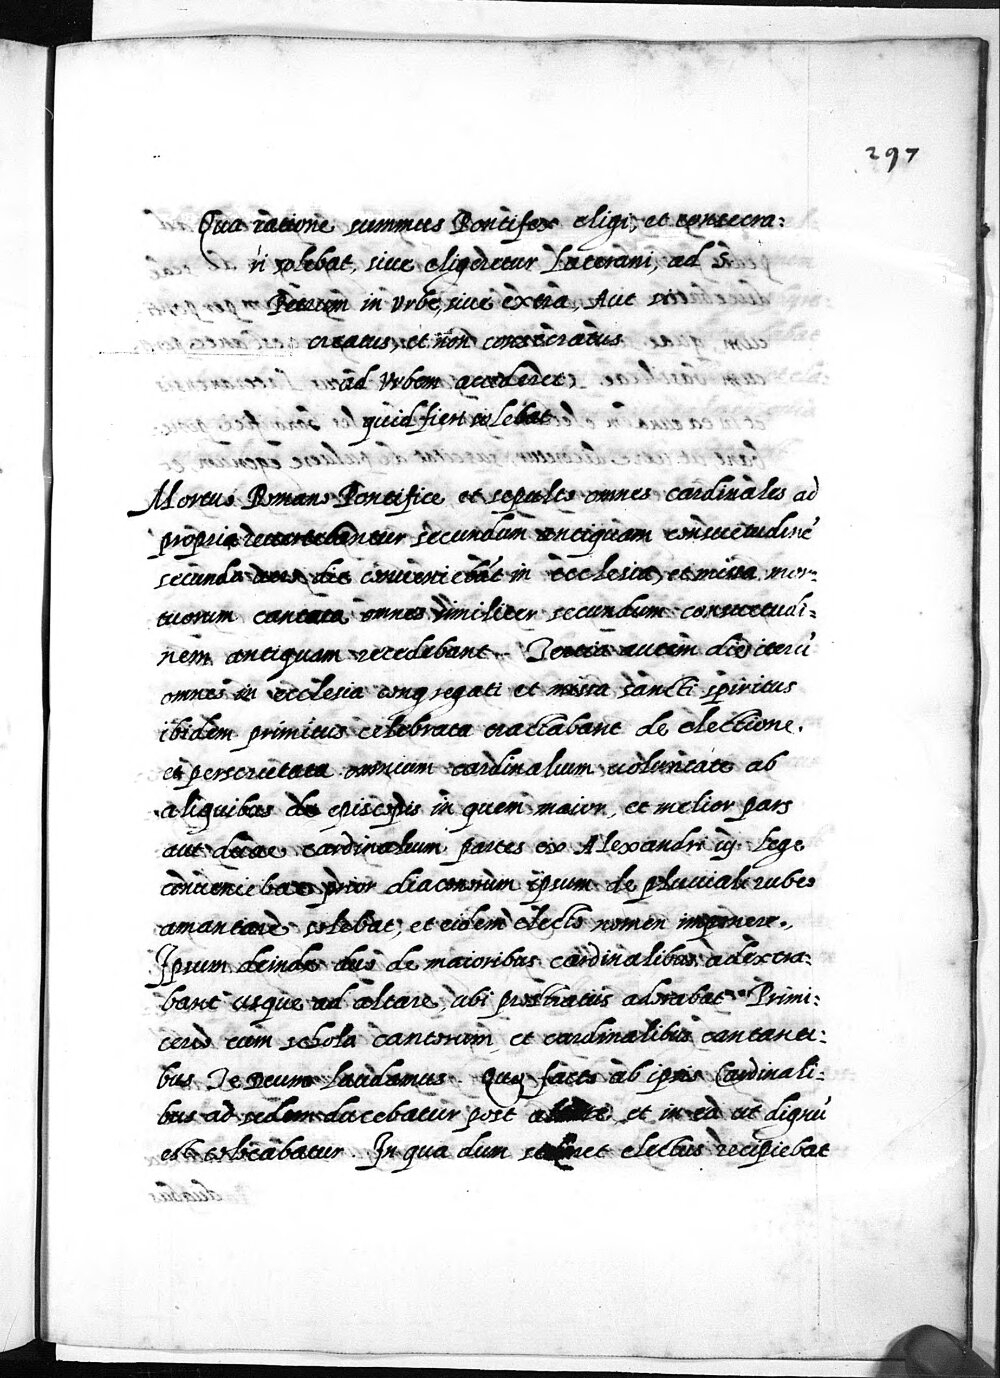 297
Qua ratione summus Pontifex eligi, et consecra:
ri solebat, siue eligeretur Laterani, ad S.
Petrum in Vrbe, siue extra, Aut si
creatus, et non consecratus
ad Vrbem accederet,
quid fieri solebat
Mortuo Romano Pontifice et sepulto omnes cardinales ad
propria reuertebantur secundum antiquam consuetudinē
secunda die conueniebāt in ecclesia, et missa mor:
tuorum cantata omnes similiter secundum consuetudi:
nem antiquam recedebant. Tertia autem die iterū
omnes in ecclesia congregati et missa sancti spiritus
ibidem primitus celebrata tractabant de electione.
et perscrutata omnium cardinalium uoluntate ab
aliquibus de episcopis in quem maior, et melior pars
aut duae cardinalium partes ex Alexandri iij. lege
conueniebat prior diaconorum ipsum de pluuiali rubeo
amantare solebat, et eidem electo nomen imponere.
Ipsum deinde duo de maioribus cardinalibus adextra:
bant usque ad altare, ubi prostratus adorabat Primi:
cerio cum schola cantorum, et cardinalibus cantanti:
bus Te Deum laudamus. Quo facto ab ipsis Cardinali:
bus ad sedem ducebatur post altare, et in ea ut dignū
est collocabatur. In qua dum sederet electus recipiebat